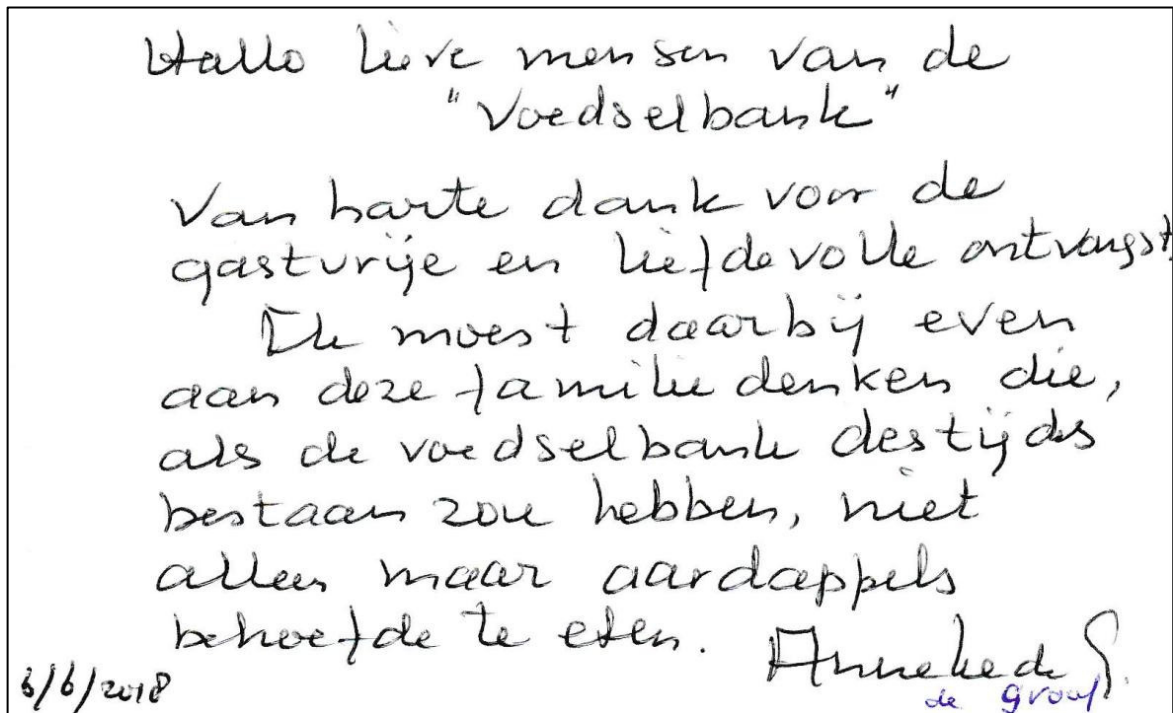 Hallo lieve mensen van de
"Voedselbank"
Van harte dank voor de
gastvrije en liefdevolle ontvangst.
Ik moest daarbij even
aan deze familie denken die,
als de voedselbank destijds
bestaan zou hebben, niet
alleen maar aardappels
behoefde te eten.
Anneke de G.
de Graaf
6/6/2018